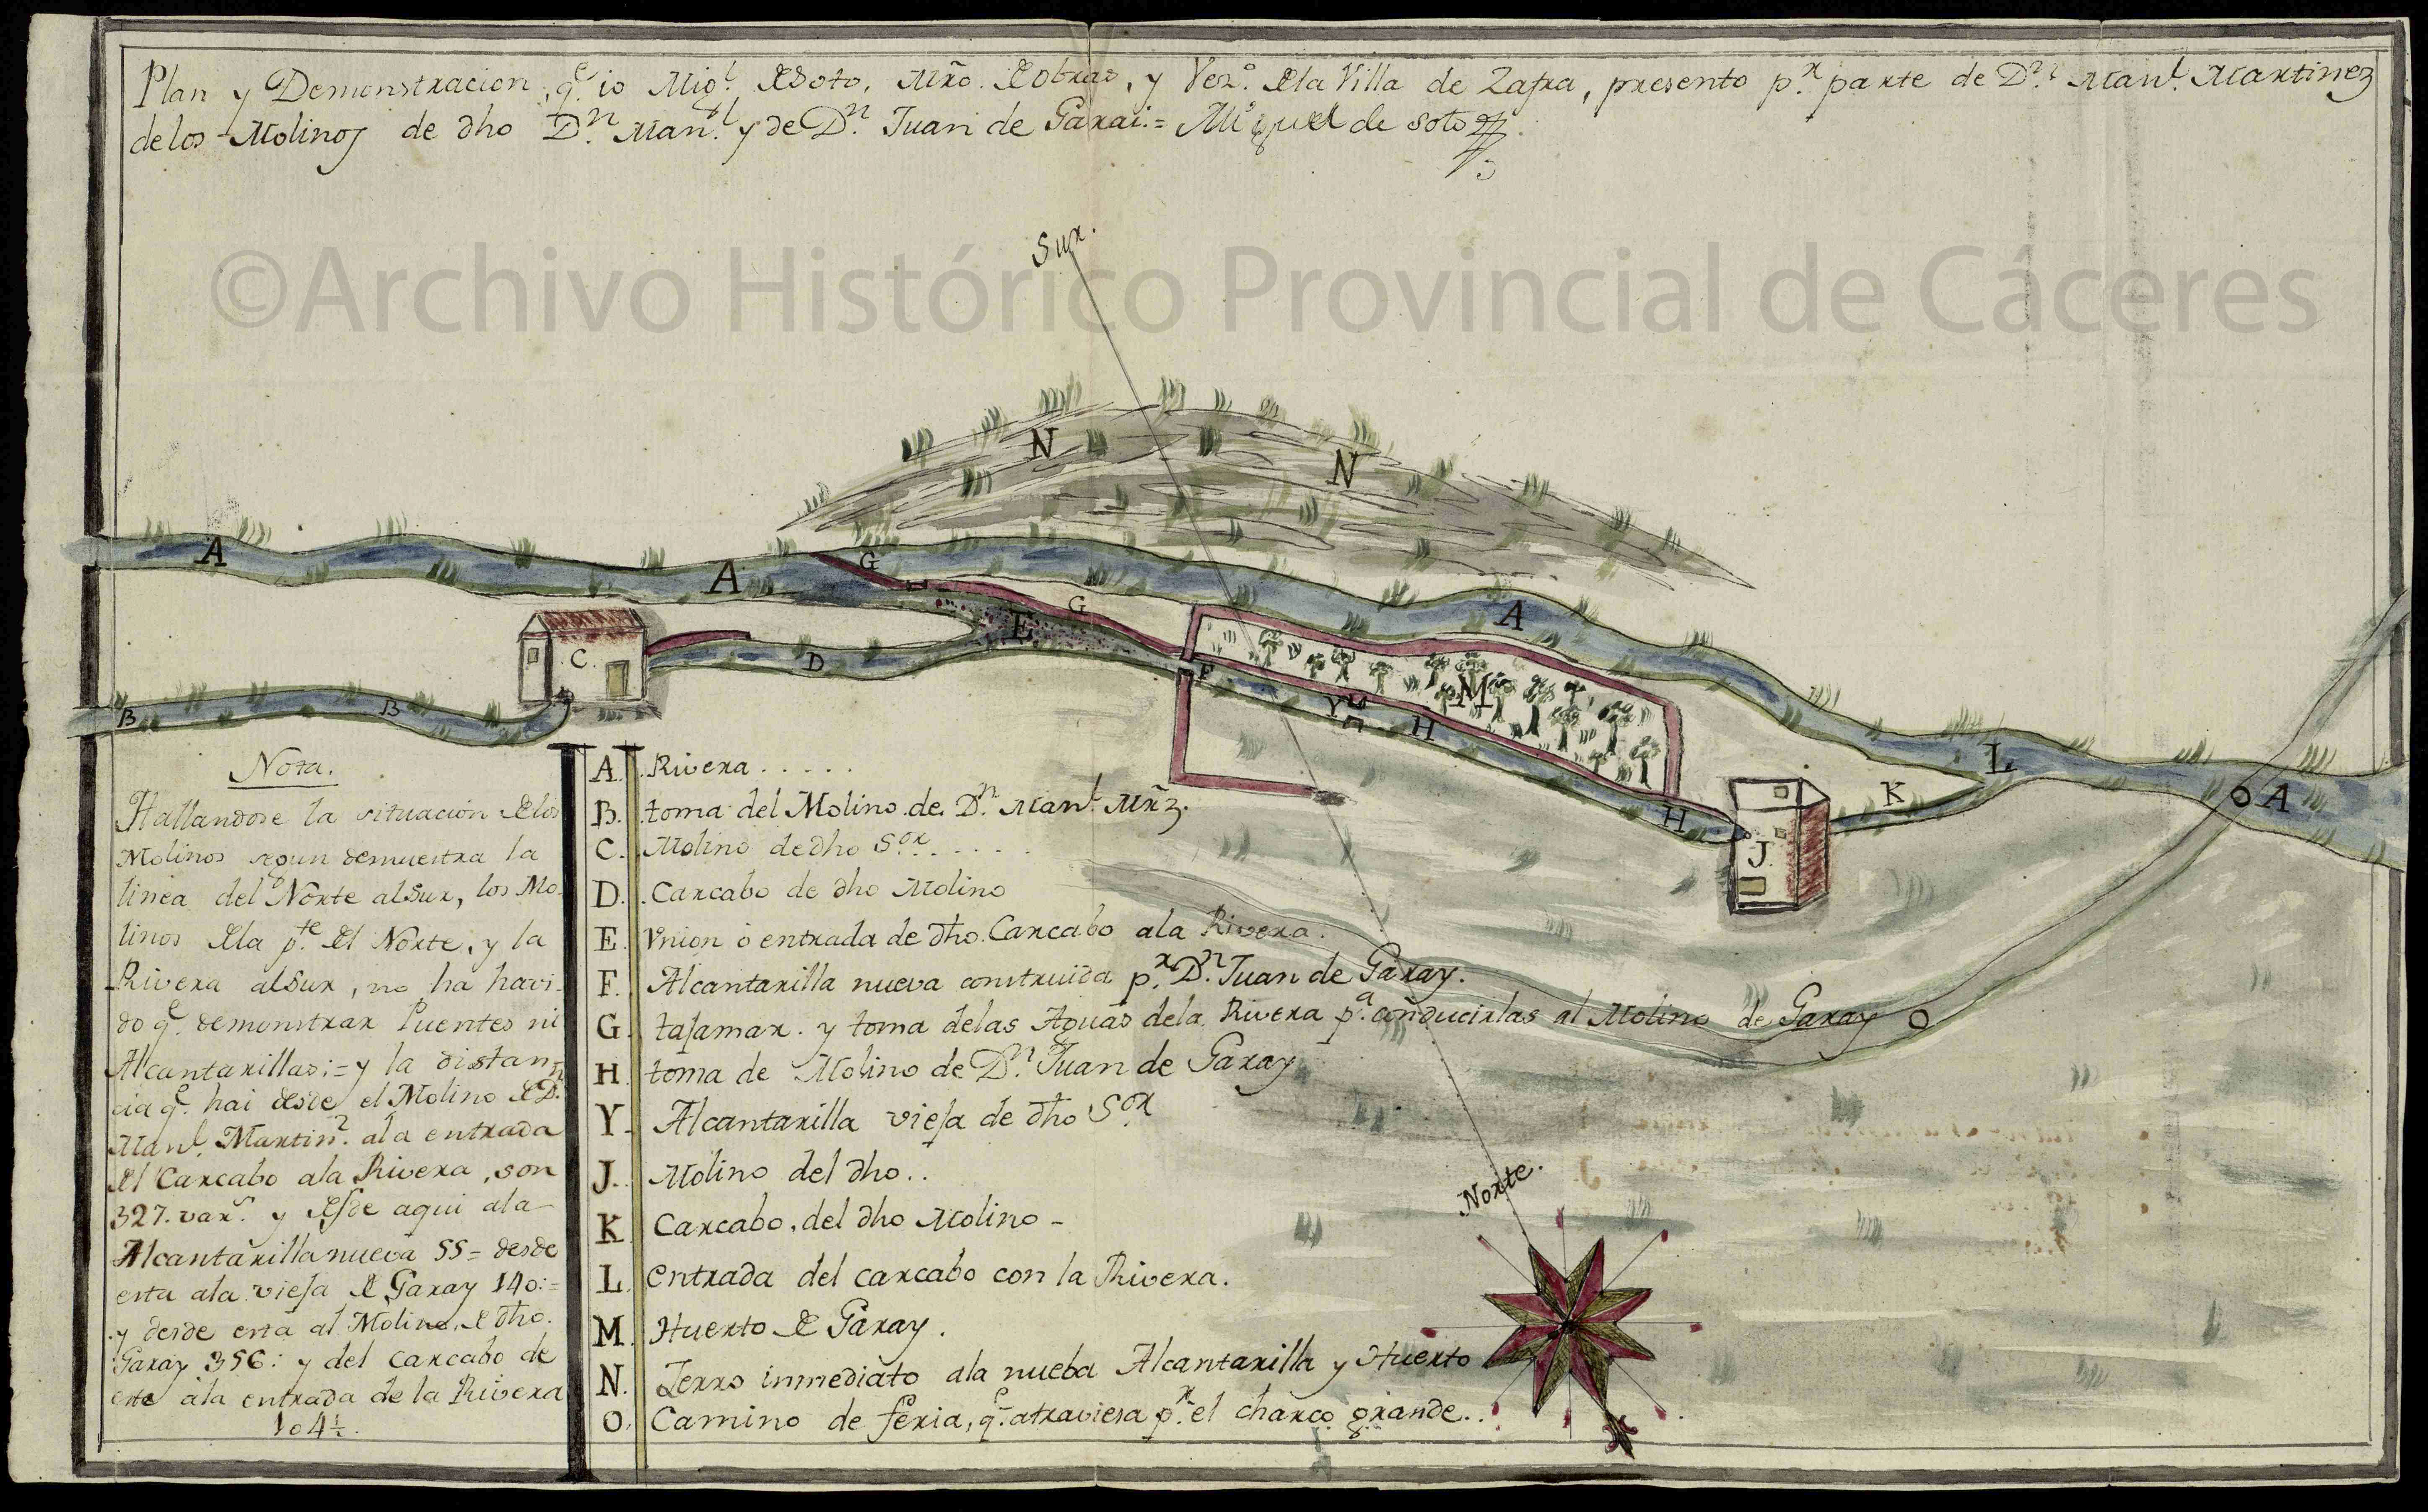 Plan y Demonstracion, q.e io Mig.l de Soto, Mro. de obras, y Vez.o de la Villa de Zafra, presento p.r parte de D.n Man.l Martinez
de los Molinos de dho D.n Man.l y de D.n Juan de Garai = Miguel de Soto
©Archivo Histórico Provincial de Cáceres
Sur.
N
N
A
G
A
G
E
A
C.
D
F
M
B
B
Y
H
L
K
A
O
H
J
Nota.
Hallandose la situacion de los
Molinos segun demuestra la
linea del Norte al Sur, los Mo-
linos de la p.te del Norte, y la
Rivera al Sur, no ha havi-
do q.e demonstrar Puentes ni
Alcantarillas:= y la distan-
cia q.e hai desde el Molino de D.n
Man.l Martin.z ala entrada
del Carcabo ala Rivera, son
327. var.s y desde aqui ala
Alcantarilla nueva 55= desde
esta ala vieja de Garay 140:=
y desde esta al Molino de dho.
Garay 356: y del carcabo de
este ala entrada de la Rivera
104½.
A. Rivera . . . . .
B. toma del Molino de D.n Man.l Mrz.
C. Molino de dho S.or . . . . .
D. Carcabo de dho Molino
E. Vnion ò entrada de dho. Carcabo ala Rivera.
F. Alcantarilla nueva construida p.r D.n Juan de Garay.
G. tajamar. y toma delas Aguas dela Rivera p.a conducirlas al Molino de Garay
O
H. toma de Molino de D.n Juan de Garay
Y. Alcantarilla vieja de dho S.or
J. Molino del dho..
K Carcabo, del dho Molino -
L. entrada del carcabo con la Rivera.
M. Huerto de Garay.
N. Zerro inmediato ala nueba Alcantarilla y Huerto
O. Camino de feria, q.e atraviesa p.r el charco grande..
Norte.